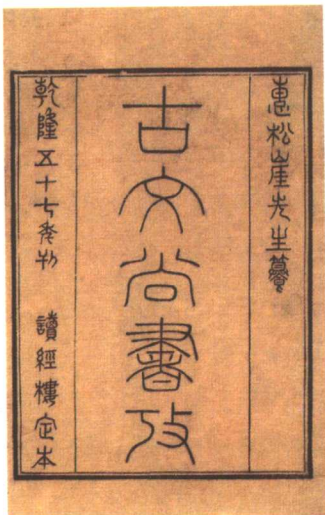 惠松崖先生纂
古文尚書攷
乾隆五十七年刊 讀經樓定本